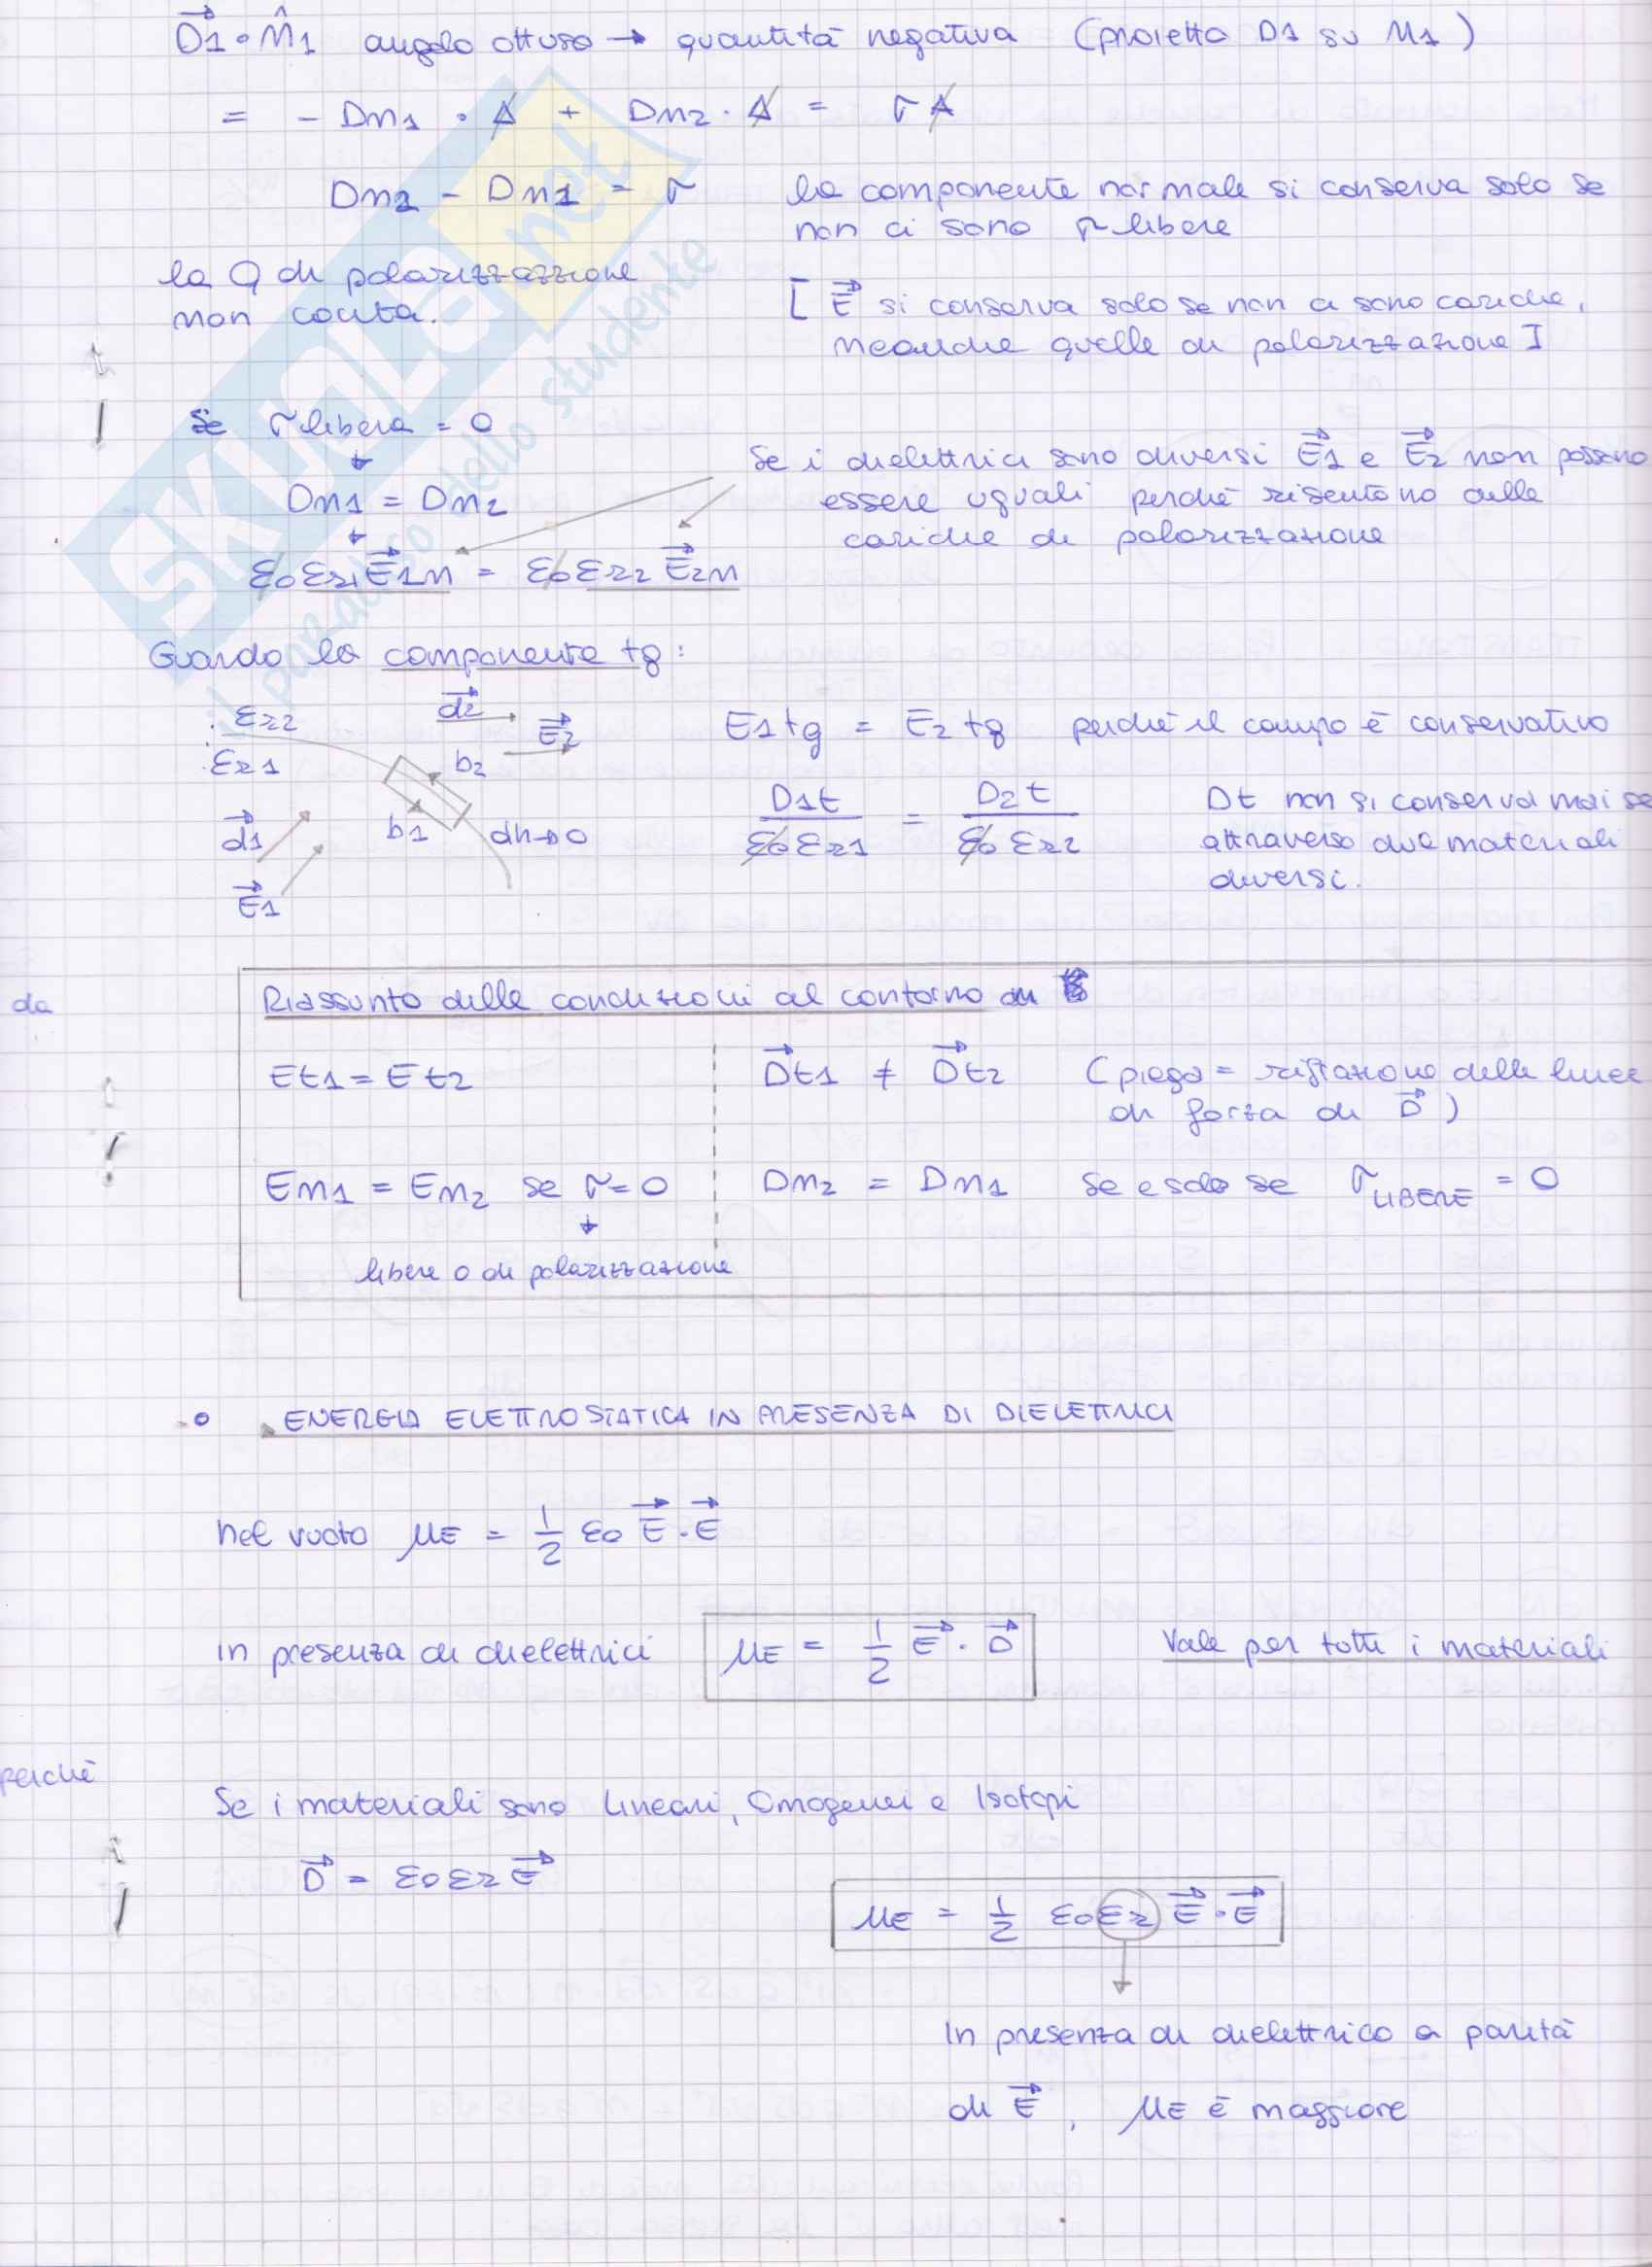 D⃗1 • n̂1 angolo ottuso → quantità negativa (proietto D1 su n1)
= - Dn1 • A + Dn2 · A = σA
Dn2 - Dn1 = σ la componente normale si conserva solo se
non ci sono σ libere
la Q di polarizzazzione
non conta.
[ E⃗ si conserva solo se non ci sono cariche,
neanche quelle di polarizzazione ]
Se σ libera = 0
↓
Dn1 = Dn2
↓
ε0 εr1 E⃗1n = ε0 εr2 E⃗2n
Se i dielettrici sono diversi E⃗1 e E⃗2 non possono
essere uguali perché risentono delle
cariche di polarizzazione
Guardo la componente tg:
εr2
εr1
d⃗2
E⃗2
b2
b1
dh→0
d⃗1
E⃗1
E1tg = E2tg perché il campo è conservativo
D1t / ε0 εr1 = D2t / ε0 εr2
Dt non si conserva mai se
attraverso due materiali
diversi.
da
Riassunto delle condizioni al contorno di
Et1 = Et2
D⃗t1 ≠ D⃗t2 (piega = rifrazione delle linee
di forza di D⃗)
En1 = En2 se σ = 0
↓
libere o di polarizzazione
Dn2 = Dn1 se e solo se σ LIBERE = 0
ENERGIA ELETTROSTATICA IN PRESENZA DI DIELETTRICI
nel vuoto μE = 1/2 ε0 E⃗ · E⃗
in presenza di dielettrici μE = 1/2 E⃗ · D⃗ Vale per tutti i materiali
perché
Se i materiali sono Lineari, Omogenei e Isotopi
D⃗ = ε0 εr E⃗
μE = 1/2 ε0 εr E⃗ · E⃗
In presenza di dielettrico a parità
di E⃗, μE è maggiore
SKUOLA.net
il paradiso dello studente